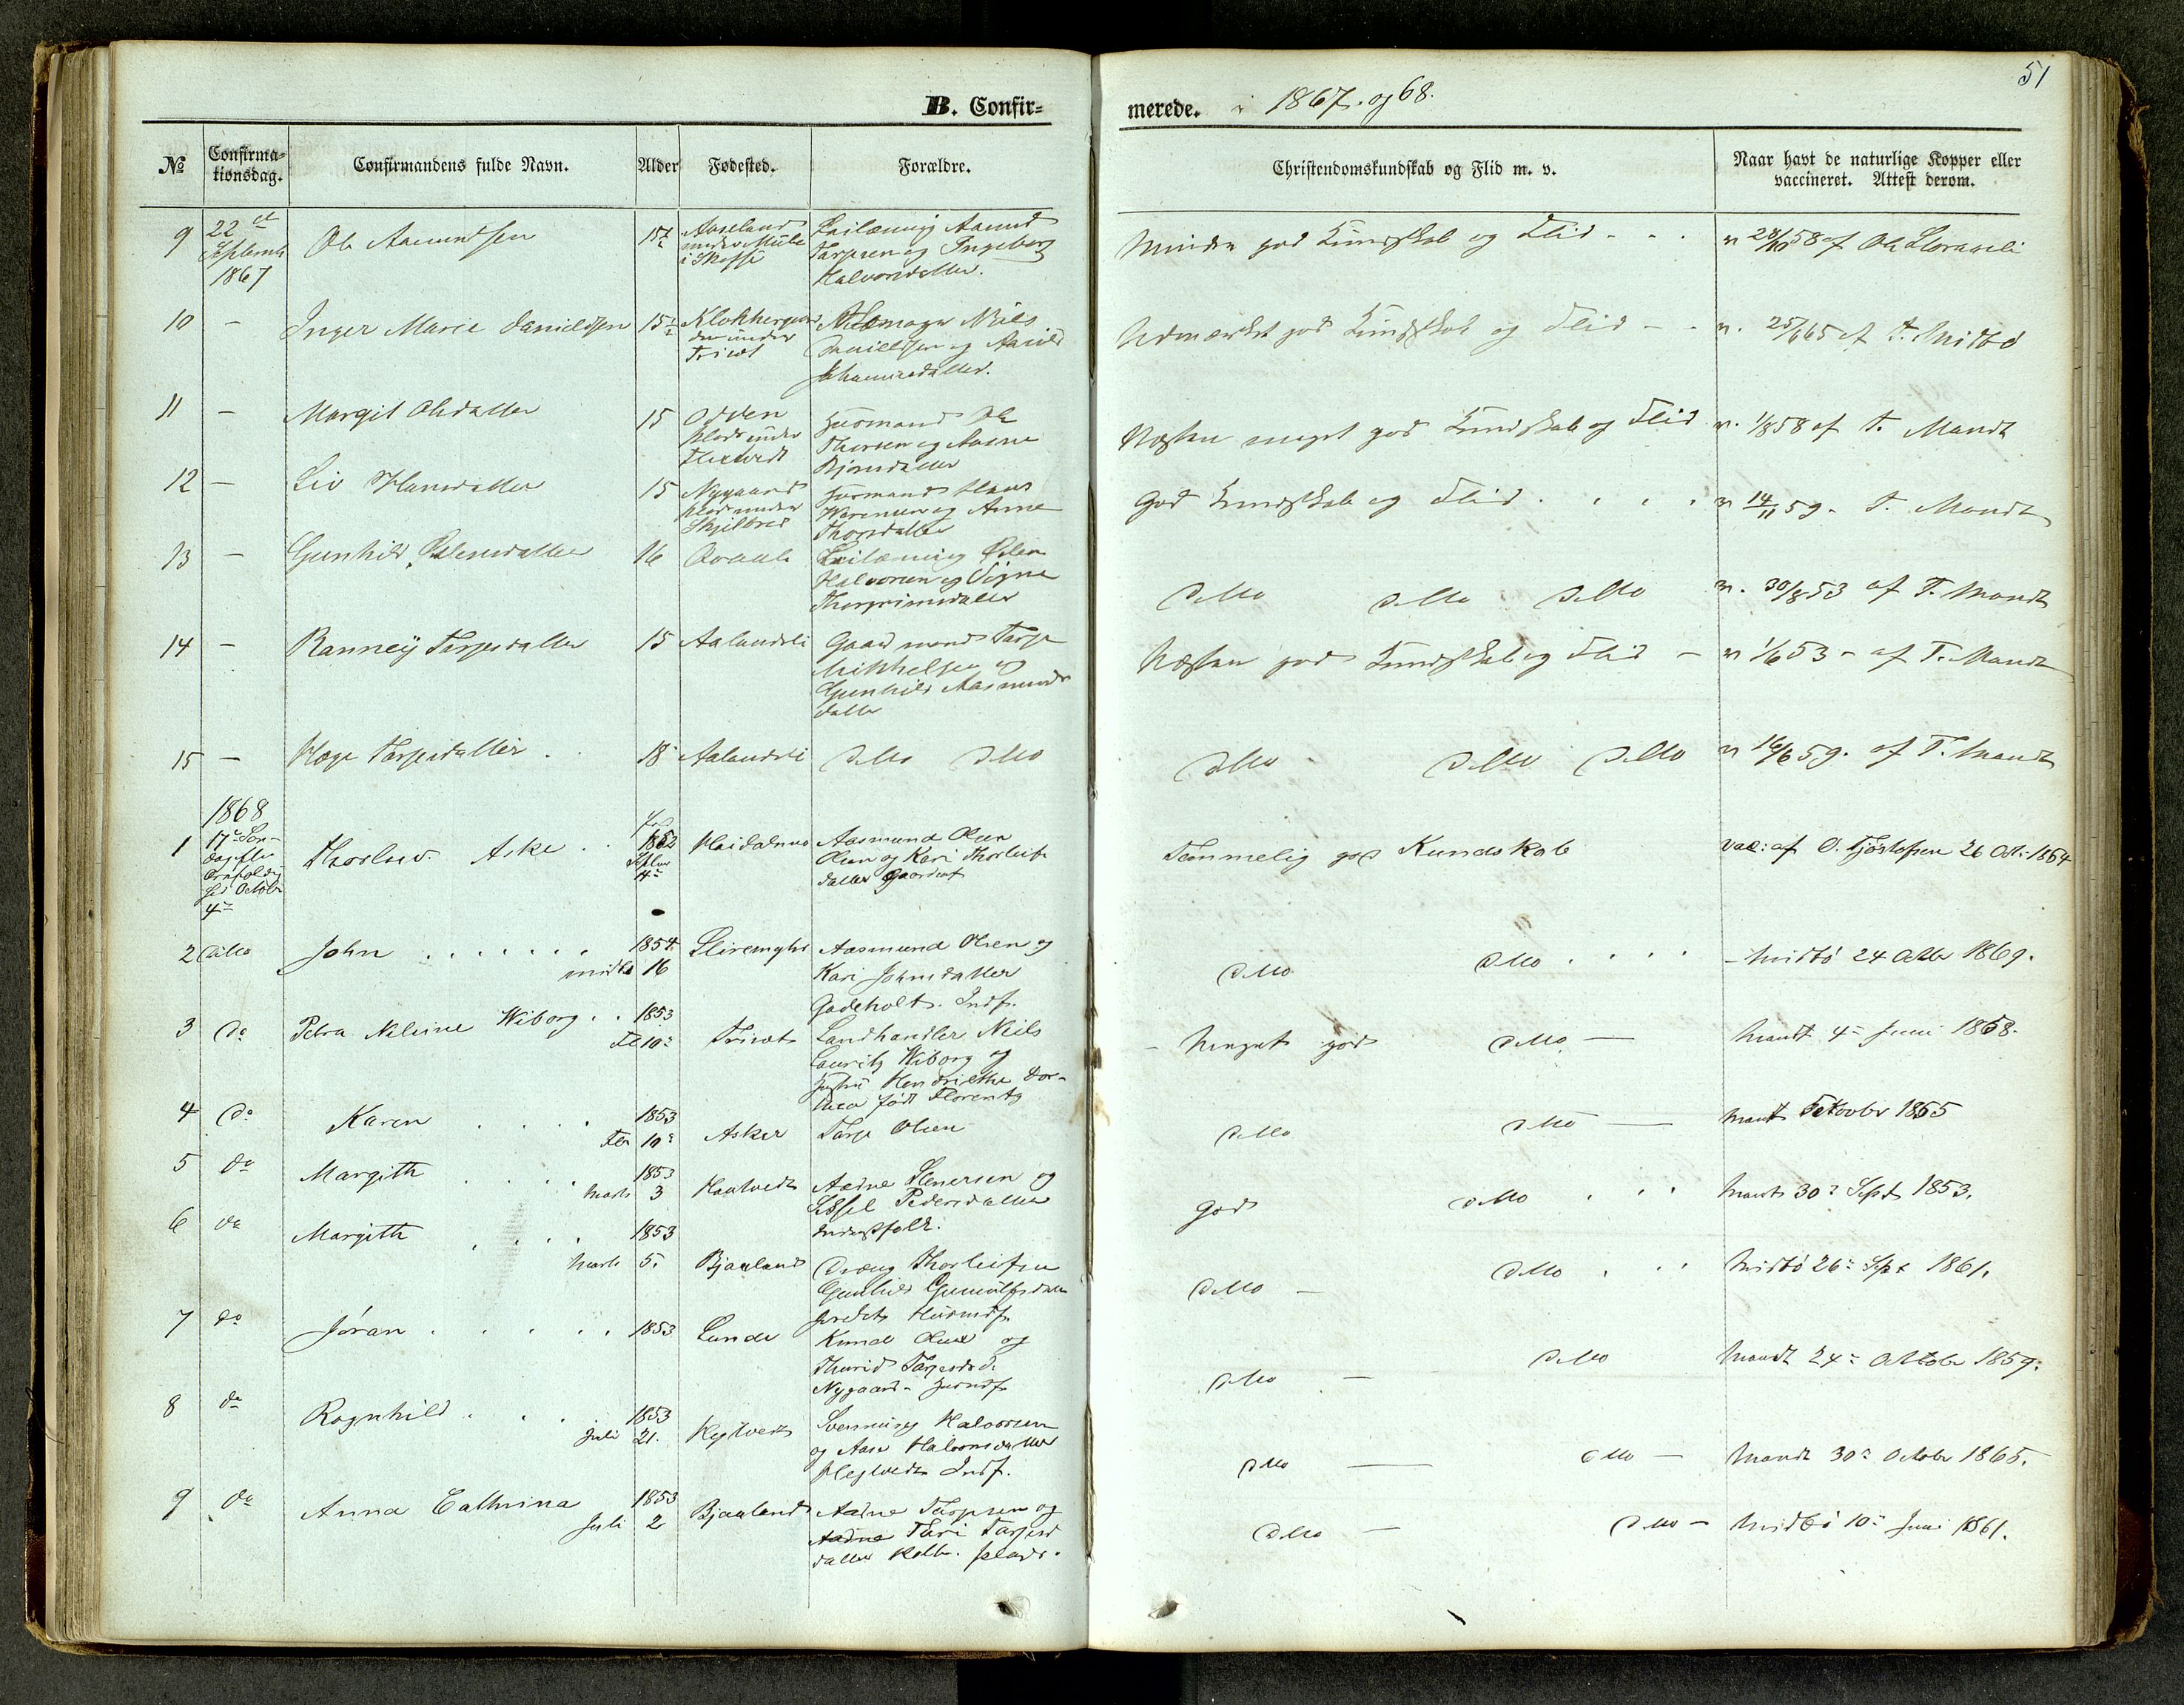 51
B. Confir-
merede. i 1867. og 68.
№
Confirma-
tionsdag.
Confirmandens fulde Navn.
Alder
Fødested.
Forældre.
Christendomskundskab og Flid m. v.
Naar havt de naturlige Kopper eller
vaccineret. Attest derom.
9
22
Septemb
1867
Ole Aamundsen
15½
Aaseland
under
i
Leilænding Aamund
Tarjesen og Ingeborg
Halvorsdatter.
Mindre god Kundskab og Flid - - -
v 28/10 58 af Ole
10 -
Inger Marie Danieldsen
15½
under
Triset
Niels
Danieldsen og
Johannesdatter.
Udmærket god Kundskab og Flid - -
v. 25/6 65 af T. Midbø
11 -
Margit Olsdatter
15
Odden
plads under
Husmand Ole
Thorsen og Aasne
Bjørnsdatter
Næsten meget god Kundskab og Flid
v. 1/8 58 af T. Mandt
12 -
Liv Hansdatter
15
Nygaard
plads under
Skjelbred
Husmand Hans
og Anne
Thorsdatter
God Kundskab og Flid . . . .
v 14/11 59. T. Mandt
13 -
Gunhild Østensdatter
16
Leilænding Østen
Halvorsen og Signe
Thorgrimsdatter
ditto ditto ditto
v. 30/8 53 af T. Mandt
14 -
Ranneÿ Tarjesdatter
15
Aalandsli
Gaardmand Tarje
Mikkelsen og
Gunhild Aasmunds
datter
Næsten god Kundskab og Flid -
v 1/6 53 - af T. Mandt
15 -
Hæge Tarjesdatter .
18
Aalandsli
ditto ditto
ditto ditto ditto
v 16/6 59. af T. Mandt
1868
1
17de Søn-
dag efter
October
4de
Thorleiv Aske . .
1852
Septbr
4de
Haidalmo
Aasmund Olsen
Olsen og Kari Thorleifs
datter
Temmelig god Kundskab
vac: af O. Tjøstolfsen 26 Oct: 1864
2 ditto
John . . . . . .
1854.
16
Aasmund Olsen og
Kari Johnsdatter
Gadeholt. Indf.
ditto ditto . . . .
- Midbö 24 Octbr 1869.
3 do
Petra Nilsine Wiborg . .
1853
10de
Triset
Landhandler Niels
Lauritz Wiborg og
Hustru Hendriette Dor-
thea født Florentz
- Meget god ditto -
Mandt 4de Juni 1858.
4 do
Karen . . . .
1853
10de
Asker
Tarje Olsen
ditto ditto -
Mandt October 1865
5 do
Margith . . . .
1853
Marts 3
Haatvedt
Aadne Stenersen og
Sissel Pedersdatter
Indersfolk.
god ditto . . .
Mandt 30te Sept 1853.
6 do
Margith . . . .
1853
Marts 5.
Bjaaland
Dræng Thorleifsen
Gunhild Gunnulfsdatter
Husmdf.
ditto - ditto . . .
Midbö 26de Sept 1861.
7 do
Jøran . . . . .
1853
Lunde
Knud Olsen og
Thurid Tarjesdd.
Nygaard - Husmdf.
ditto - ditto
Mandt 24de Octobr 1859.
8 do
Ragnhild . . . .
1853
Juli 21.
Hegtvedt
Svenning Halvorsen
og Aase Halvorsdatter
Hegtvedt Indf.
ditto - ditto -
Mandt 30te October 1865.
9 do
Anna Cathrina
1853
Juli 2
Bjaaland
Aadne Tarjesen og
Aadne Thri Tarjesd
datter Plads.
ditto - ditto -
Midbö 10de Juni 1861.